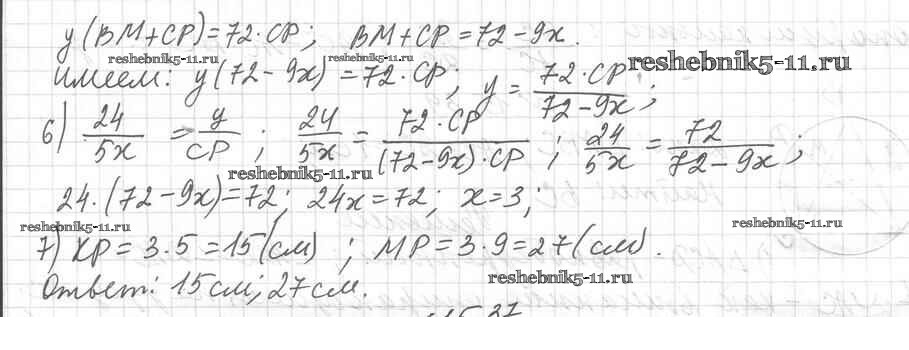 y(BM+CP)=72·CP; BM+CP=72-9x.
reshebnik5-11.ru
reshebnik5-11.ru
Имеем: y(72-9x)=72·CP; y = 72·CP/(72-9x);
reshebnik5-11.ru
6) 24/5x = y/CP; 24/5x = 72·CP/((72-9x)·CP); 24/5x = 72/(72-9x);
reshebnik5-11.ru
24·(72-9x)=72; 24x=72; x=3;
reshebnik5-11.ru
reshebnik5-11.ru
7) KP=3·5=15(см); MP=3·9=27(см).
reshebnik5-11.ru
Ответ: 15см; 27см.